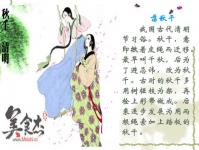 秋千·清明
荡秋千
我国古代清明
节习俗。秋千,意
即揪着皮绳而迁移。
最早叫千秋,后为
了避忌讳,改为秋
千。古时的秋千多
用树桠枝为架,再
栓上彩带做成。后
来逐步发展为用两
根绳索加上踏板的
秋千。
美食杰